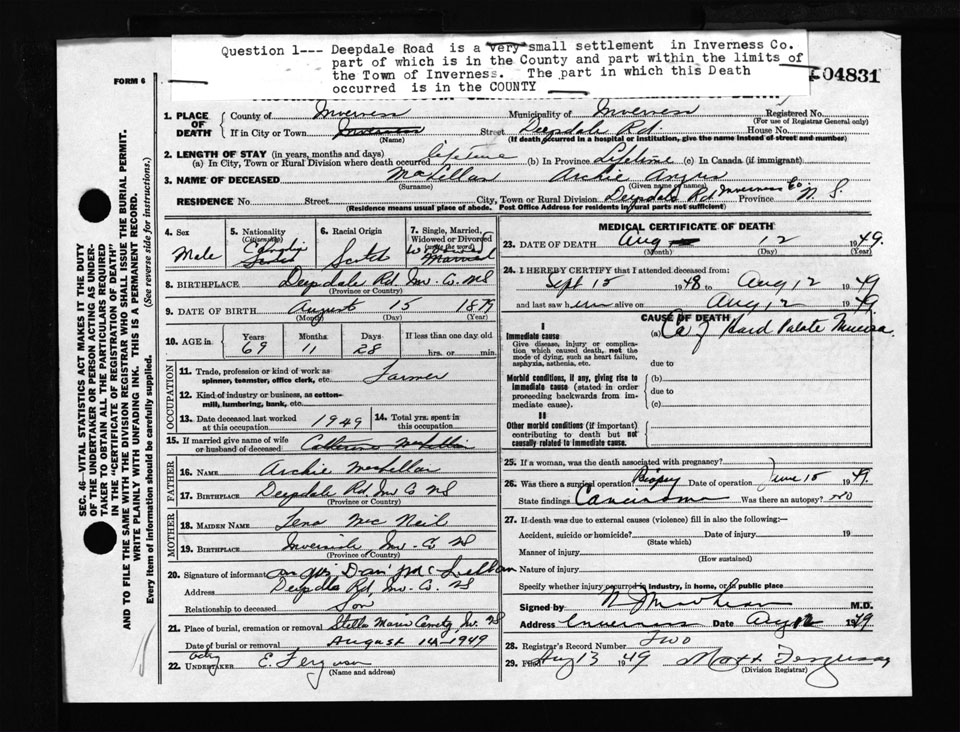 Question 1--- Deepdale Road is a very small settlement in Inverness Co.
part of which is in the County and part within the limits of
the Town of Inverness. The part in which this Death
occurred is in the COUNTY
FORM 6
04831
1. PLACE OF DEATH County of Inverness Municipality of Inverness Registered No.
(For use of Registrar General only)
If in City or Town Inverness Street Deepdale Rd. House No.
(Name) (If death occurred in a hospital or institution, give the name instead of street and number)
2. LENGTH OF STAY (in years, months and days)
(a) In City, Town or Rural Division where death occurred lifetime (b) In Province Lifetime (c) In Canada (if immigrant)
3. NAME OF DECEASED MacLellan Archie Angus
(Surname) (Given name or names)
RESIDENCE No. Street City, Town or Rural Division Deepdale Rd Inverness Co Province N.S.
(Residence means usual place of abode. Post Office Address for residents in rural parts not sufficient)
4. Sex Male
5. Nationality (Citizenship)
6. Racial Origin Scotch
7. Single, Married, Widowed or Divorced (Write the word) Married
8. BIRTHPLACE Deepdale Rd. Inv. Co. NS
(Province or Country)
9. DATE OF BIRTH August 15 1879
(Month) (Day) (Year)
10. AGE in Years 69 Months 11 Days 28 If less than one day old
hrs. or min.
OCCUPATION
11. Trade, profession or kind of work as Farmer
spinner, teamster, office clerk, etc.
12. Kind of industry or business, as cotton-
mill, lumbering, bank, etc.
13. Date deceased last worked at this occupation 1949
14. Total yrs. spent in this occupation
15. If married give name of wife or husband of deceased Catherine
FATHER
16. NAME Archie MacLellan
17. BIRTHPLACE Deepdale Rd Inv Co NS
MOTHER
18. MAIDEN NAME Lena McNeil
19. BIRTHPLACE Inverside Inv. Co NS
(Province or Country)
20. Signature of informant Angus Dan McLellan
Address Deepdale Rd, Inv. Co. NS
Relationship to deceased Son
21. Place of burial, cremation or removal Stella Maris Cemety, Inv. NS
Date of burial or removal August 14 1949
22. Actg UNDERTAKER E. Ferguson
(Name and address)
MEDICAL CERTIFICATE OF DEATH
23. DATE OF DEATH Aug 12 1949.
(Month) (Day) (Year)
24. I HEREBY CERTIFY that I attended deceased from:
Sept 15 1948 to Aug, 12 1949
and last saw him alive on Aug, 2 1949.
CAUSE OF DEATH
I
Immediate cause (a) Ca of Hard Palate Mucosa
Give disease, injury or complica-
tion which caused death, not the
mode of dying, such as heart failure,
asphyxia, asthenia, etc. due to
Morbid conditions, if any, giving rise to (b)
immediate cause (stated in order due to
proceeding backwards from im-
mediate cause). (c)
II
Other morbid conditions (if important)
contributing to death but not
causally related to immediate cause.
25. If a woman, was the death associated with pregnancy?
26. Was there a surgical operation? Biopsy Date of operation June 15 1949.
State findings Carcinoma Was there an autopsy? no
27. If death was due to external causes (violence) fill in also the following:—
Accident, suicide or homicide? Date of injury 19
(State which)
Manner of injury
(How sustained)
Nature of injury
Specify whether injury occurred in industry, in home, or in public place
Signed by M.D.
Address Inverness Date Aug 12 1949
28. Registrar's Record Number Two
29. Filed Aug 13 1949 Ferguson
(Division Registrar)
SEC. 46—VITAL STATISTICS ACT MAKES IT THE DUTY
OF THE UNDERTAKER OR PERSON ACTING AS UNDER-
TAKER TO OBTAIN ALL THE PARTICULARS REQUIRED
IN THE "CERTIFICATE OF REGISTRATION OF DEATH"
AND TO FILE THE SAME WITH THE DIVISION REGISTRAR WHO SHALL ISSUE THE BURIAL PERMIT.
WRITE PLAINLY WITH UNFADING INK. THIS IS A PERMANENT RECORD.
Every item of information should be carefully supplied. (See reverse side for instructions.)